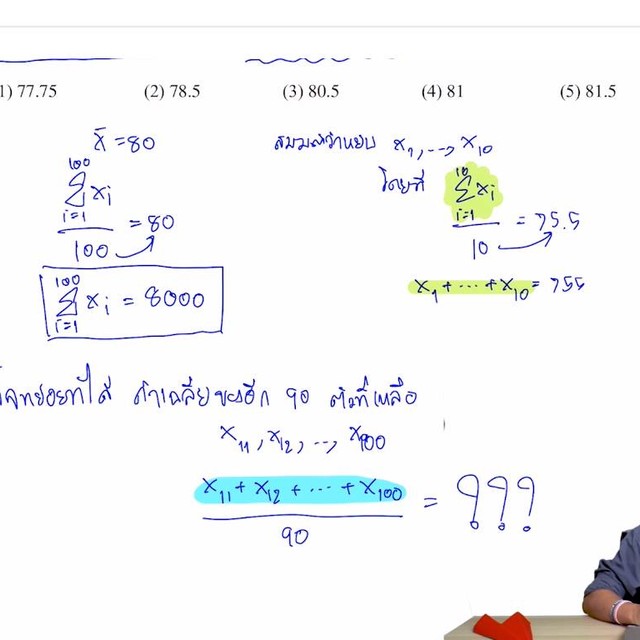 1) 77.75 (2) 78.5 (3) 80.5 (4) 81 (5) 81.5
x̄ = 80
∑_{i=1}^{100} x_i / 100 = 80
∑_{i=1}^{100} x_i = 8000
สมมติว่าหยิบ x_1, ..., x_10
โดยที่ ∑_{i=1}^{10} x_i / 10 = 75.5
x_1 + ... + x_10 = 755
โจทย์อยากได้ ค่าเฉลี่ยของอีก 90 ตัวที่เหลือ
x_11, x_12, ..., x_100
x_11 + x_12 + ... + x_100 / 90 = ???